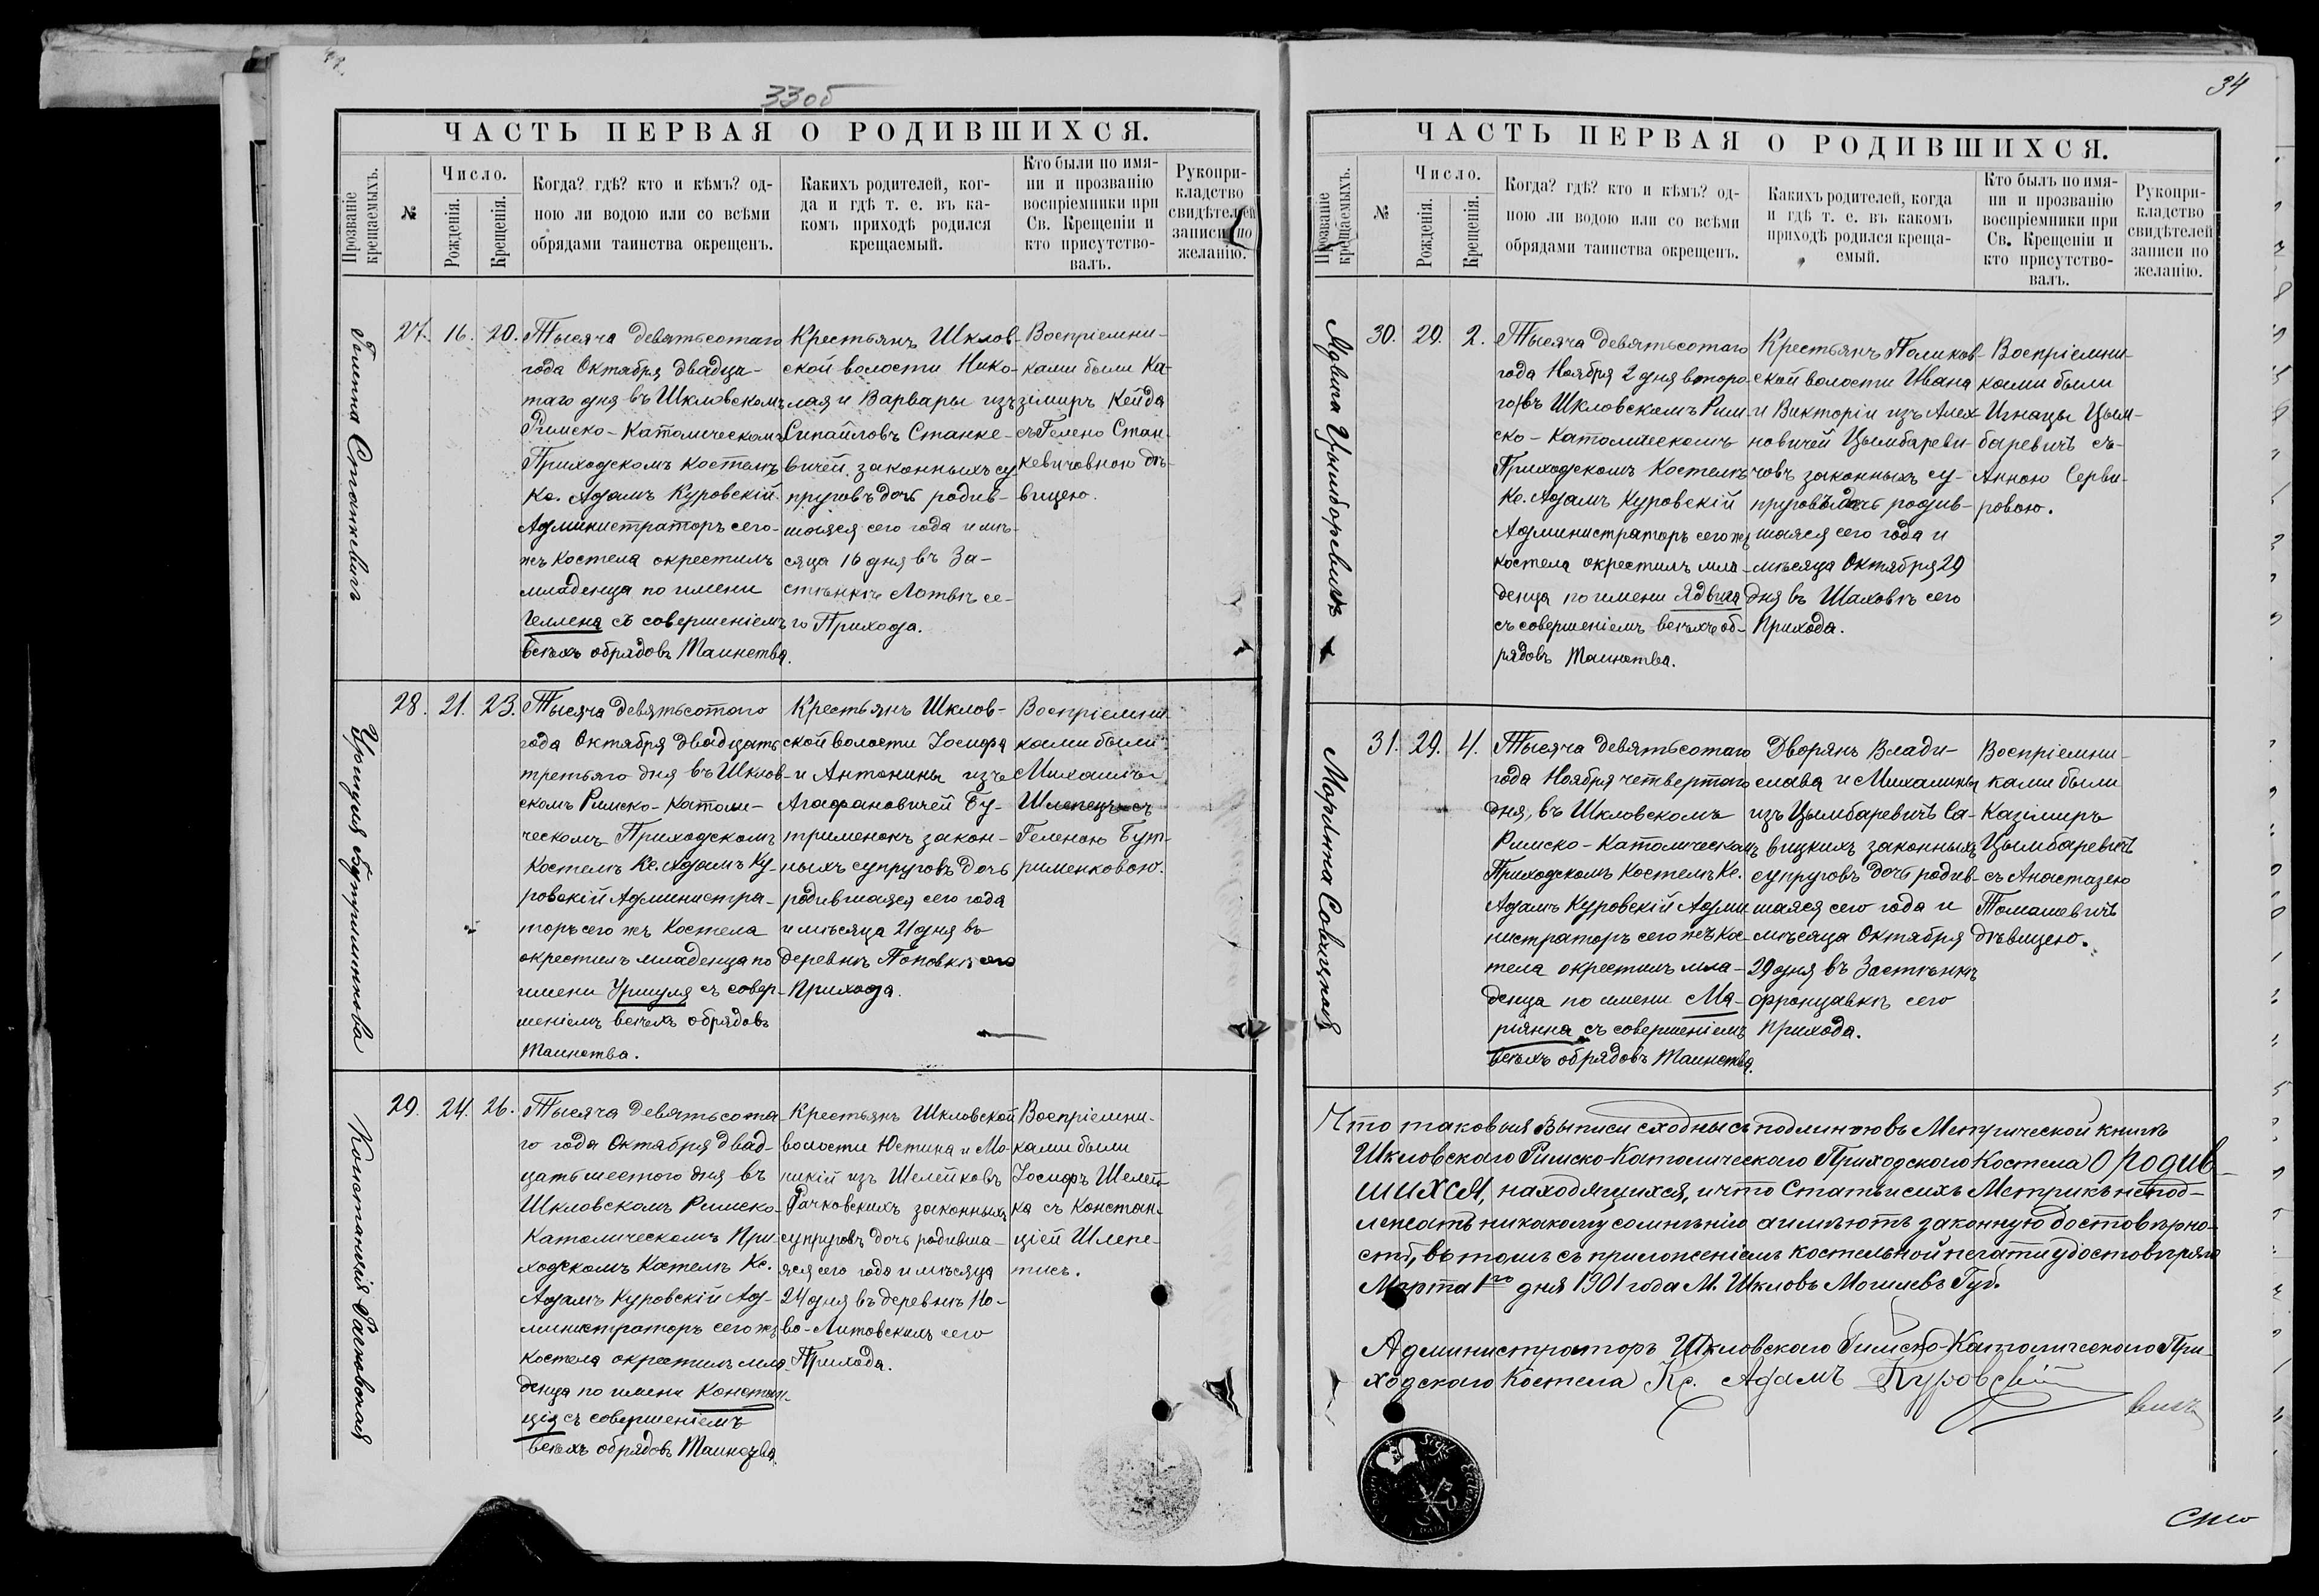 33об
ЧАСТЬ ПЕРВАЯ О РОДИВШИХСЯ.
Прозваніе крещаемыхъ.
№
Число.
Рожденія.
Крещенія.
Когда? гдѣ? кто и кѣмъ? од-
ною ли водою или со всѣми
обрядами таинства окрещенъ.
Какихъ родителей, ког-
да и гдѣ т. е. въ ка-
комъ приходѣ родился
крещаемый.
Кто были по имя-
ни и прозванію
воспріемники при
Св. Крещеніи и
кто присутство-
валъ.
Рукопри-
кладство
свидѣтелей
записи по
желанію.
Гелена Станкевичъ
27. 16. 20.
Тысяча девятьсотаго
года Октября двадца-
таго дня въ Шкловскомъ
Римско-Католическомъ
Приходскомъ Костелѣ
Кс. Адамъ Куровскій
Администраторъ сего-
жъ Костела окрестилъ
младенца по имени
Геллена съ совершеніемъ
всѣхъ обрядовъ Таинства.
Крестьянъ Шклов-
ской волости Нико-
лая и Варвары изъ
Сипайловъ Станке-
вичей законныхъ су
пруговъ дочь родив-
шаяся сего года и мѣ-
сяца 16 дня въ За-
стѣнкѣ Лотвѣ се-
го Прихода.
Воспріемни-
ками были Ка-
зіміръ Кейда
съ Гелено Стан-
кевичовною дѣ-
вицею.
Уршуля Бутрименкова
28. 21. 23.
Тысяча девятьсотаго
года Октября двадцать
третьяго дня въ Шклов-
скомъ Римско-Католи-
ческомъ Приходскомъ
Костелѣ Кс. Адамъ Ку-
ровскій Администра-
торъ сего жъ Костела
окрестилъ младенца по
имени Уршуля съ совер-
шеніемъ всѣхъ обрядовъ
Таинства.
Крестьянъ Шклов-
ской волости Іосифа
и Антонины изъ
Агафановичей Бу-
трименокъ закон-
ныхъ супруговъ дочь
родившаяся сего года
и мѣсяца 21 дня въ
деревнѣ Поповкѣ его
Прихода.
Воспріемни-
ками были
Михаилъ
Шлепецъ съ
Геленою Бут-
рименковою.
Констанція Рачковская
29. 24. 26.
Тысяча девятьсота-
го года Октября двад-
цать шестого дня въ
Шкловскомъ Римско-
Католическомъ При-
ходскомъ Костелѣ Кс.
Адамъ Куровскій Ад-
министраторъ сего жъ
Костела окрестилъ мла
денца по имени Констан-
ція съ совершеніемъ
всѣхъ обрядовъ Таинства.
Крестьянъ Шкловской
волости Юстина и Мо-
никій изъ Шелейковъ
Рачковскихъ законныхъ
супруговъ дочь родивша-
яся сего года и мѣсяца
24 дня въ деревнѣ Но-
во-Литовскилъ сего
Прихода.
Воспріемни-
ками были
Іосифъ Шелей-
ка съ Констан-
ціей Шлепе-
тисъ.
34
ЧАСТЬ ПЕРВАЯ О РОДИВШИХСЯ.
Прозваніе крещаемыхъ.
№
Число.
Рожденія.
Крещенія.
Когда? гдѣ? кто и кѣмъ? од-
ною ли водою или со всѣми
обрядами таинства окрещенъ.
Какихъ родителей, когда
и гдѣ т. е. въ какомъ
приходѣ родился креща-
емый.
Кто былъ по имя-
ни и прозванію
воспріемники при
Св. Крещеніи и
кто присутство-
валъ.
Рукопри-
кладство
свидѣтелей
записи по
желанію.
Ядвига Цымбаревичъ
30. 29. 2.
Тысяча девятьсотаго
года Ноября 2 дня второ-
го въ Шкловскомъ Рим-
ско-Католическомъ
Приходскомъ Костелѣ
Кс. Адамъ Куровскій
Администраторъ сего жъ
костела окрестилъ мла-
денца по имени Ядвига
съ совершеніемъ всѣхъ об-
рядовъ Таинства.
Крестьянъ Поликов-
ской волости Ивана
и Викторіи изъ Алех
новичей Цымбареви-
човъ законныхъ су-
пруговъ дочь родив-
шаяся сего года и
мѣсяца Октября 29
дня въ Шаховкѣ сего
Прихода.
Воспріемни-
ками были
Игнацы Цым-
баревичъ съ-
Анною Серви-
ровою.
Марьяна Савицкая
31. 29. 4.
Тысяча девятьсотаго
года Ноября четвертаго
дня, въ Шкловскомъ
Римско-Католическомъ
Приходскомъ Костелѣ Кс.
Адамъ Куровскій Адми
нистраторъ сего жъ Кос-
тела окрестилъ мла-
денца по имени Ма-
рianна съ совершеніемъ
всѣхъ обрядовъ Таинства.
Дворянъ Влади-
слава и Михалины
изъ Цымбаревичъ Са-
вицкихъ законныхъ
супруговъ дочь родив-
шаяся сего года и
мѣсяца Октября
29 дня въ Застѣнкѣ
Францавкѣ сего
Прихода.
Воспріемни-
ками были
Казіміръ
Цымбаревичъ
съ Анастазею
Томашевичъ
дѣвицею.
Что таковыя Выписи сходны съ подлинною въ Метрической книгѣ
Шкловскаго Римско-Католическаго Приходскаго Костела О родив-
шихся, находящихся, и что Статьи сихъ Метрикъ не под-
лежатъ никакому сомнѣнію а имѣютъ законную достовѣрно-
сть, въ томъ съ приложеніемъ костельной печати удостовѣряю
Марта 1го дня 1901 года М. Шкловъ Могилевъ Губ.
Администраторъ Шкловскаго Римско-Католическаго При-
ходскаго Костела Кс. Адамъ Куровскій